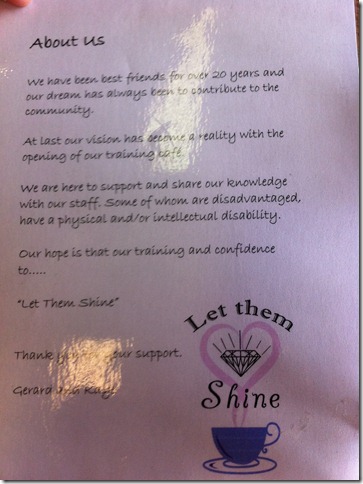 About Us
We have been best friends for over 20 years and
our dream has always been to contribute to the
community.
At last our vision has become a reality with the
opening of our training café.
We are here to support and share our knowledge
with our staff. Some of whom are disadvantaged,
have a physical and/or intellectual disability.
Our hope is that our training and confidence
to.....
"Let Them Shine"
Thank your support.
Gerard
Let them
Shine